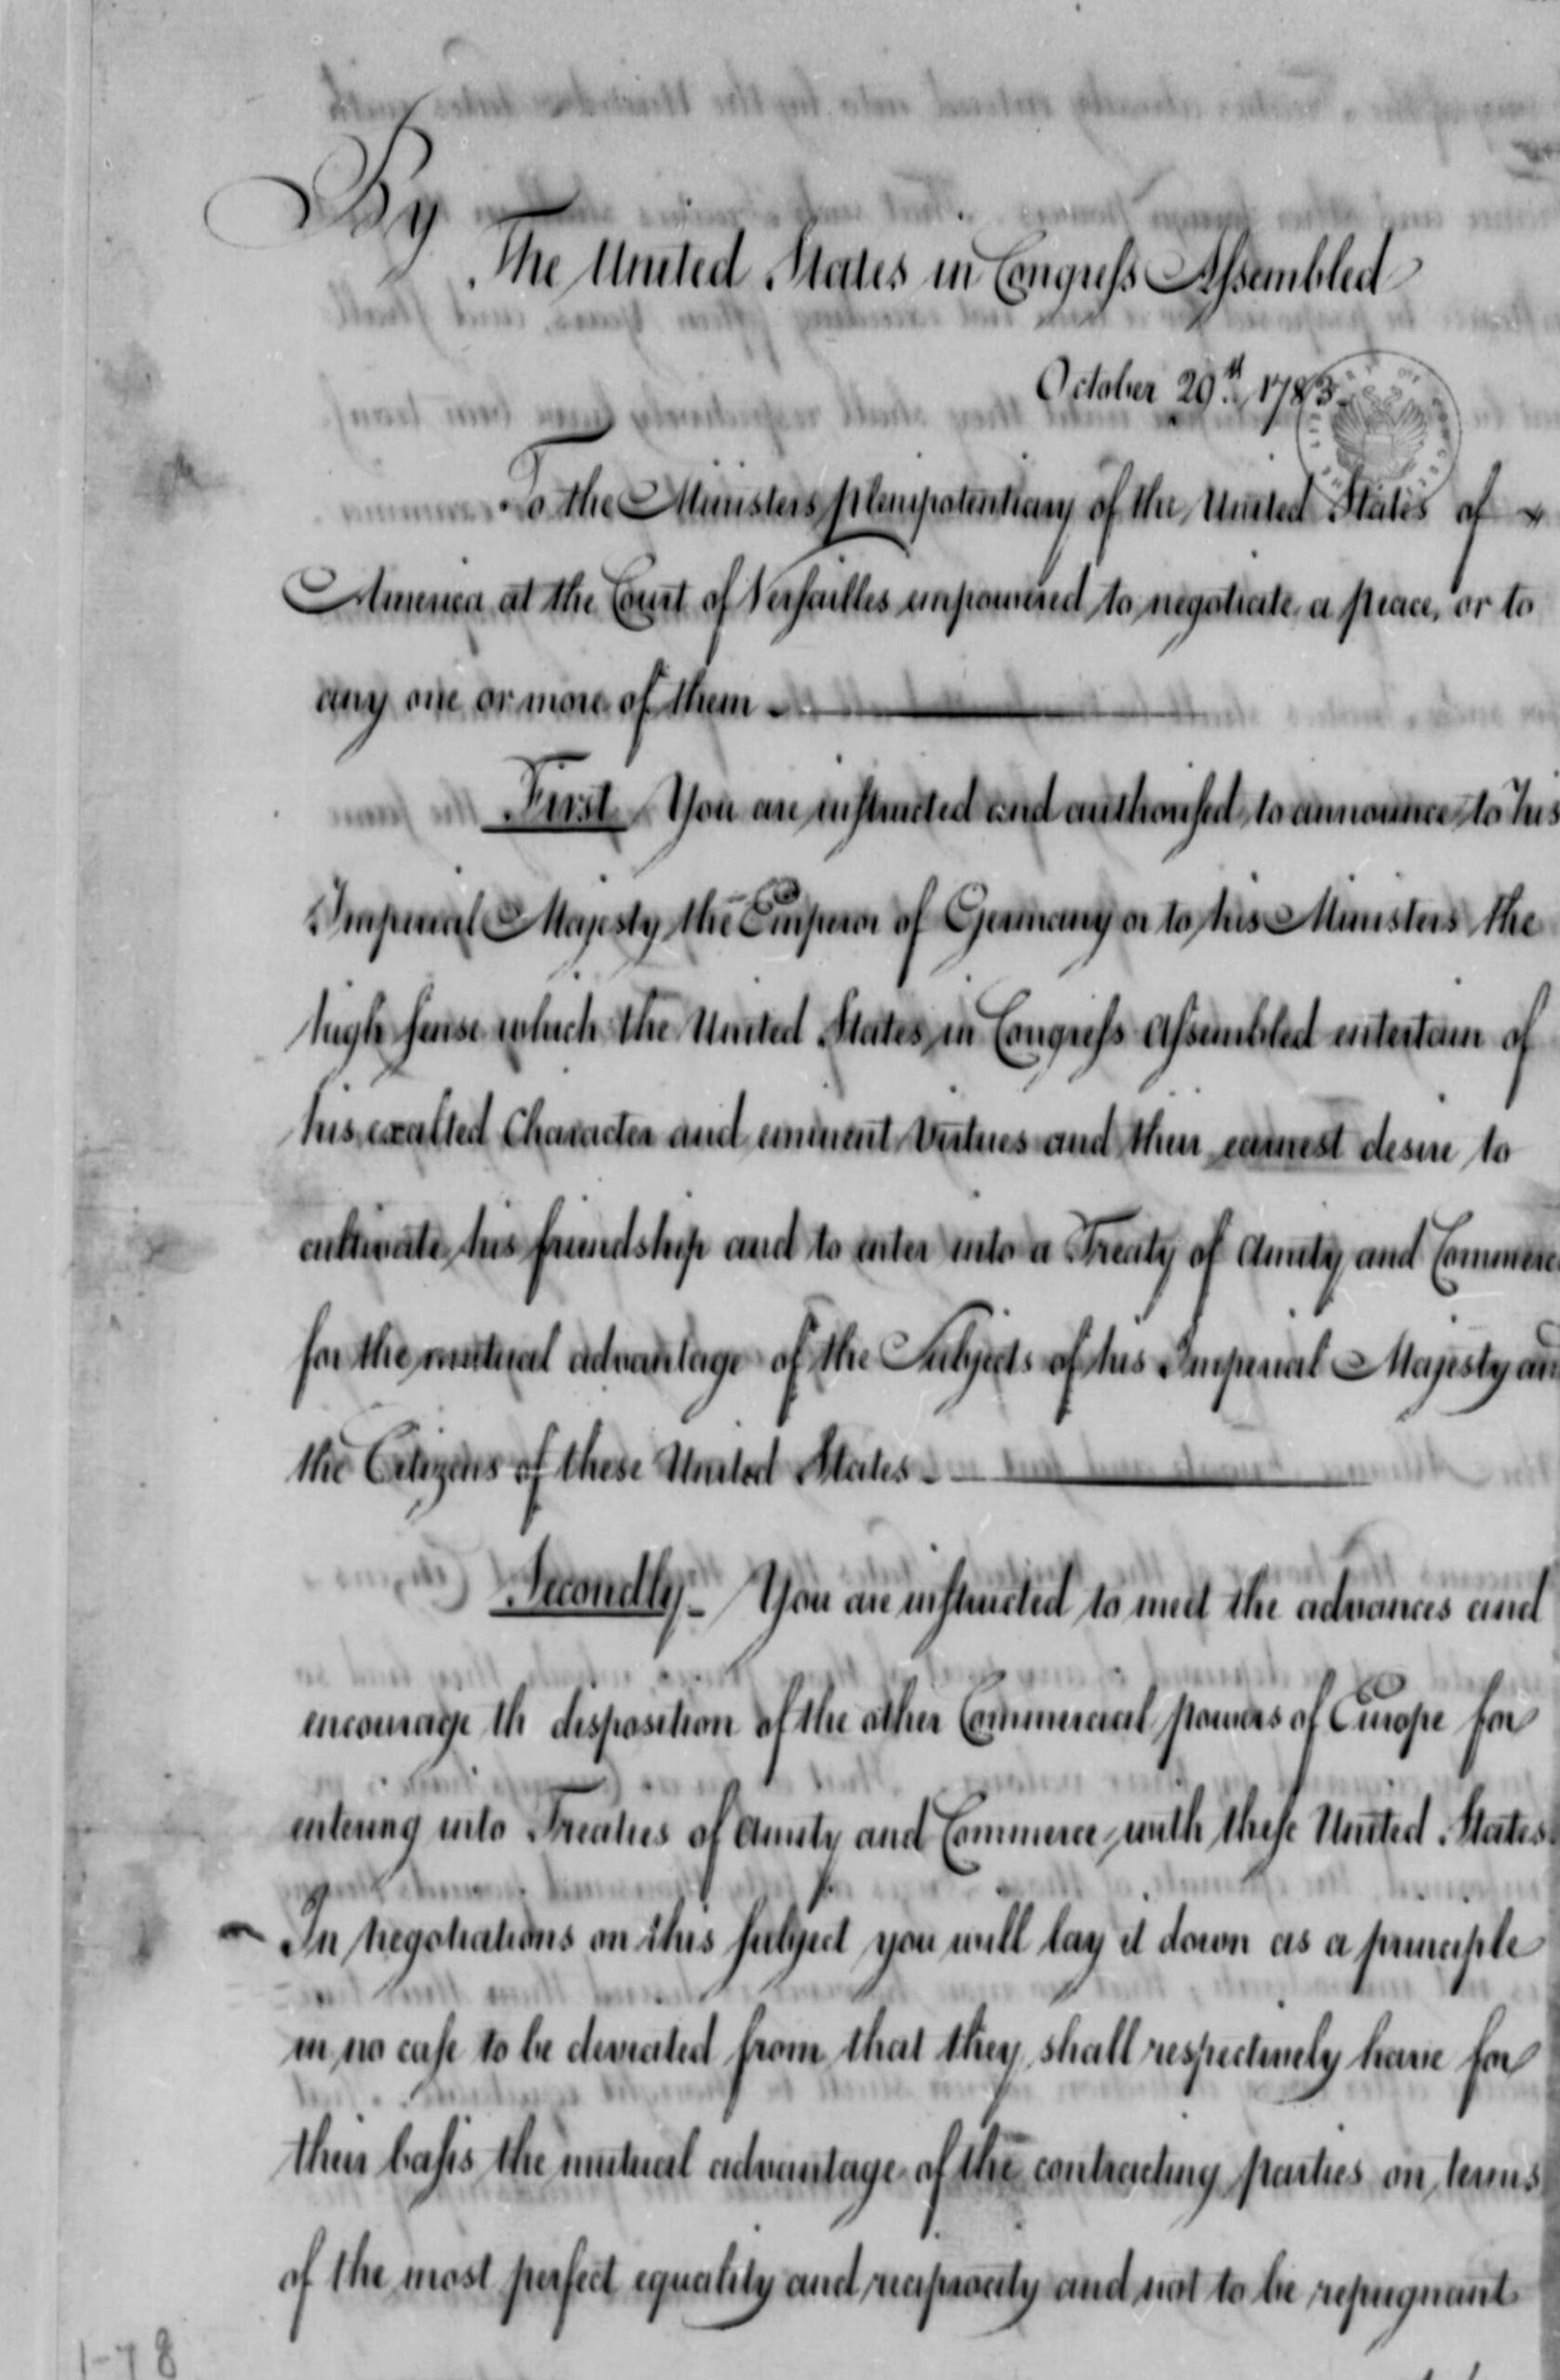 By
The United States in Congress Assembled
October 29th 1783
To the Ministers plenipotentiary of the United States of
America at the Court of Versailles empowered to negotiate a peace, or to
any one or more of them
First You are instructed and authorised to announce to his
Imperial Majesty the Emperor of Germany or to his Ministers the
high sense which the United States in Congress Assembled entertain of
his exalted Character and eminent Virtues and their earnest desire to
cultivate his friendship and to enter into a Treaty of Amity and Commerce
for the mutual advantage of the Subjects of his Imperial Majesty and
the Citizens of these United States
Secondly - You are instructed to meet the advances and
encourage th disposition of the other Commercial powers of Europe for
entering into Treaties of Amity and Commerce with these United States.
In negotiations on this subject you will lay it down as a principle
in no case to be deviated from that they shall respectively have for
their basis the mutual advantage of the contracting parties on terms
of the most perfect equality and reciprocity and not to be repugnant
1-78